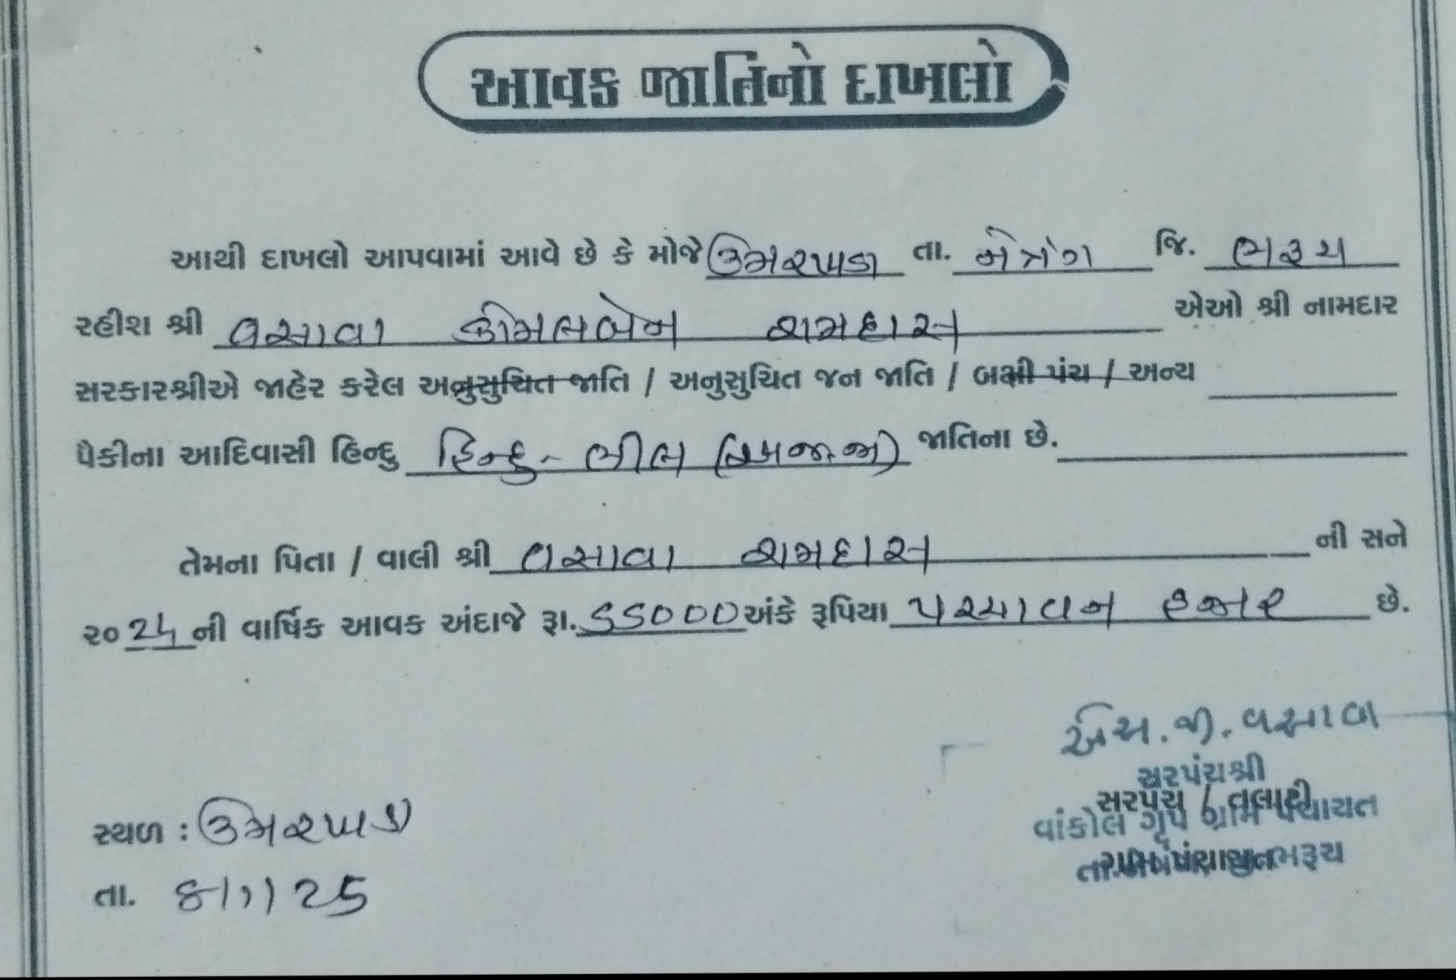 આવક જાતિનો દાખલો
આથી દાખલો આપવામાં આવે છે કે મોજે ઉમરખડા તા. નેત્રંગ જિ. ભરૂચ
રહીશ શ્રી વસાવા કોમલબેન રામદાસ એઓ શ્રી નામદાર
સરકારશ્રીએ જાહેર કરેલ અનુસુચિત જાતિ / અનુસુચિત જન જાતિ / બક્ષી પંચ / અન્ય
પૈકીના આદિવાસી હિન્દુ હિન્દુ - ભીલ (અ.જ.જા) જાતિના છે.
તેમના પિતા / વાલી શ્રી વસાવા રામદાસ ની સને
૨૦24 ની વાર્ષિક આવક અંદાજે રૂા. 55000 અંકે રૂપિયા પચ્ચાવન હજાર છે.
એસ. જી. વસાવા
સરપંચશ્રી
સરપંચ / તલાટી
વાંકોલ ગૃપ ગ્રામ પંચાયત
ગ્રામ પંચાયત ભરૂચ
સ્થળ : ઉમરખડા
તા. 8/1/25